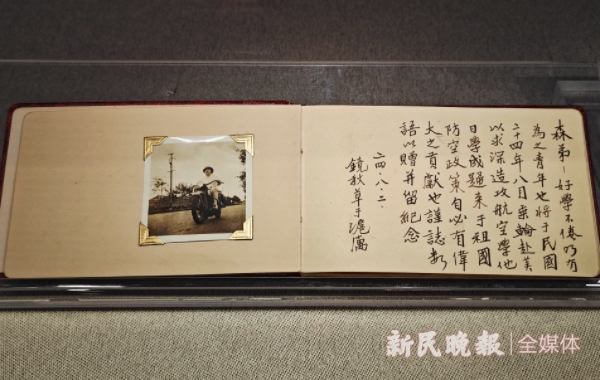 森弟一好学不倦仍有
為之青年也将于民國
二十四年八月乘輪赴美
以求深造攻航空學他
日學成歸來于祖國
防空政策自必有偉
大之貢獻也謹誌數
語以贈并留紀念
二四.八.二.
鏡秋草于滬寓
新民晚報|全媒体